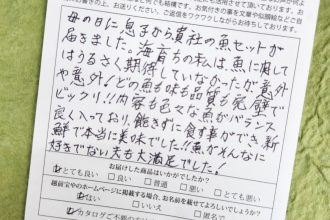 お書きの上、お送りください。ご返信をワクワクしながらお待ちしております。
母の日に息子から貴社の魚セットが
届きました。海育ちの私は魚に関して
はうるさく期待していなかったが意外
や意外!どの魚も味も品質も完璧で
ビックリ!!内容も色々な魚がバランス
良く入っており、飽きずに食す事ができ、新
鮮で本当に美味でした!!魚がそんなに
好きでない夫も大満足でした!
お届けした商品はいかがでしたか?
とても良い □良い □普通 □悪い □とても悪い
越前宝やのホームページに掲載する場合、お名前を載せてよろしいでしょうか?
はい □いいえ □匿名で